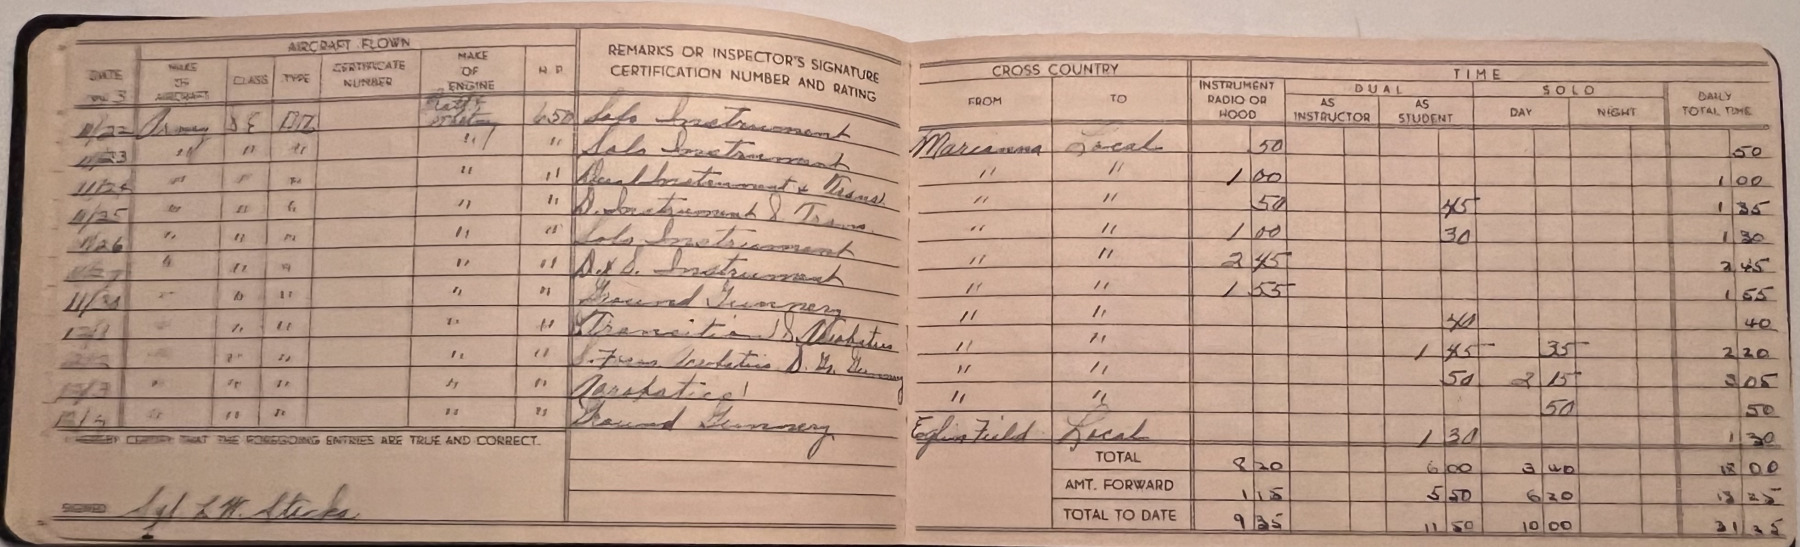 AIRCRAFT FLOWN
DATE MAKE OF AIRCRAFT CLASS TYPE CERTIFICATE NUMBER MAKE OF ENGINE H.P. REMARKS OR INSPECTOR'S SIGNATURE CERTIFICATION NUMBER AND RATING
CROSS COUNTRY TIME
FROM TO INSTRUMENT RADIO OR HOOD DUAL SOLO DAILY TOTAL TIME
AS INSTRUCTOR AS STUDENT DAY NIGHT
11/22 Army S E 650 Solo Instrument Marianna Local 50 50
11/23 " " " " " Solo Instrument " " 1 00 1 00
" " " " " Dual Instrument & Trans. " " 50 45 1 35
11/25 " " " " " D. Instrument & Trans. " " 1 00 30 1 30
11/26 " " " " " Solo Instrument " " 2 45 2 45
11/27 " " " " " D. & S. Instrument " " 1 55 1 55
11/30 " " " " " Ground Gunnery " " 40 40
" " " " Transition & " " 1 45 35 2 20
" " " " D. Gr. Gunnery " " 50 2 15 3 05
12/3 " " " " " " " 50 50
" " " " " Ground Gunnery Eglin Field Local 1 30 1 30
I HEREBY CERTIFY THAT THE FOREGOING ENTRIES ARE TRUE AND CORRECT.
TOTAL 8 20 6 00 3 40 18 00
AMT. FORWARD 1 15 5 50 6 20 13 25
TOTAL TO DATE 9 35 11 50 10 00 31 25
SIGNED